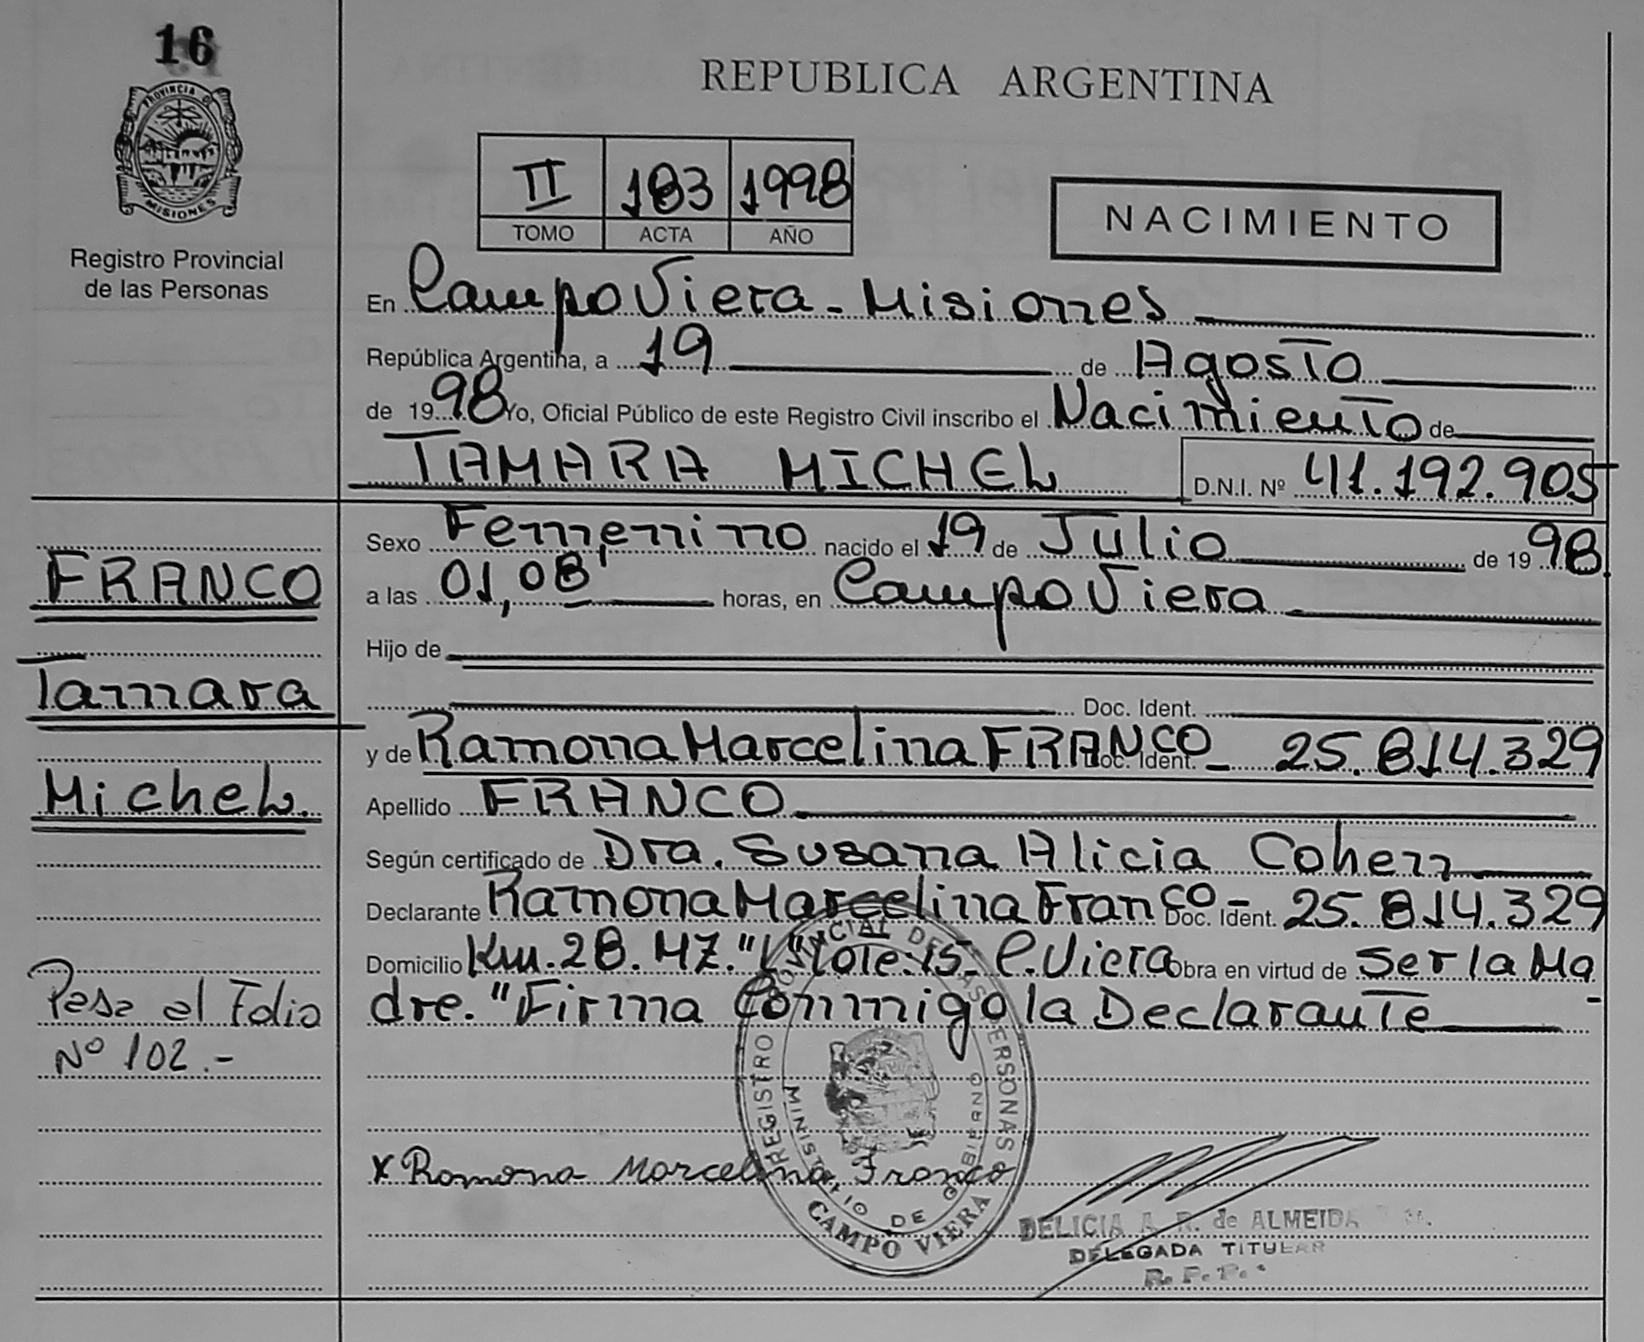 16
PROVINCIA DE
MISIONES
Registro Provincial
de las Personas
REPUBLICA ARGENTINA
II 183 1998
TOMO ACTA AÑO
NACIMIENTO
En Campo Viera - Misiones
República Argentina, a 19 de Agosto
de 1998 Yo, Oficial Público de este Registro Civil inscribo el Nacimiento de
TAMARA MICHEL D.N.I. Nº 41.192.905
Sexo Femenino nacido el 19 de Julio de 1998
a las 01,08' horas, en Campo Viera
Hijo de
Doc. Ident.
y de Ramona Marcelina FRANCO Doc. Ident. - 25.814.329
Apellido FRANCO
Según certificado de Dra. Susana Alicia Cohen
Declarante Ramona Marcelina Franco - Doc. Ident. 25.814.329
Domicilio Km. 28. MZ. "L" Lote: 15 - C. Viera Obra en virtud de Ser la Ma-
dre. "Firma Conmigo la Declarante
FRANCO
Tamara
Michel.
Pasa al Folio
Nº 102.-
x Ramona Marcelina Franco
REGISTRO PROVINCIAL DE LAS PERSONAS
MINISTERIO DE GOBIERNO
CAMPO VIERA
DELICIA A. R. de ALMEIDA
DELEGADA TITULAR
R. P. P.